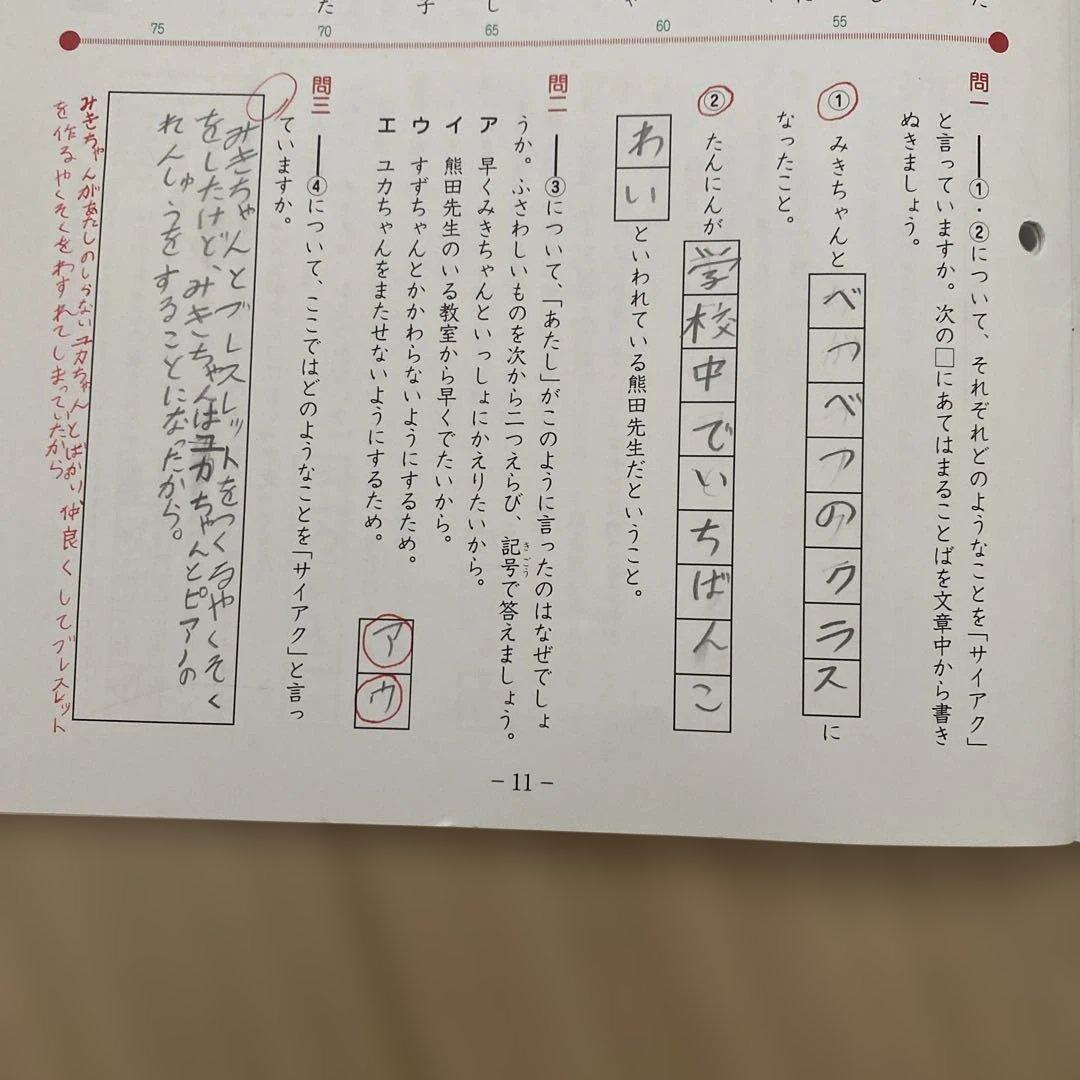 55
60
65
70
75
問一 ――①・②について、それぞれどのようなことを「サイアク」
と言っていますか。次の□にあてはまることばを文章中から書き
ぬきましょう。
① みきちゃんとべつべつのクラスに
なったこと。
② たんにんが学校中でいちばんこ
わいといわれている熊田先生だということ。
問二 ――③について、「あたし」がこのように言ったのはなぜでしょ
うか。ふさわしいものを次から二つえらび、記号で答えましょう。
きごう
ア 早くみきちゃんといっしょにかえりたいから。
イ 熊田先生のいる教室から早くでたいから。
ウ すずちゃんとかかわらないようにするため。
エ ユカちゃんをまたせないようにするため。
ア
ウ
問三 ――④について、ここではどのようなことを「サイアク」と言っ
ていますか。
みきちゃんとブレスレットをつくるやくそく
をしたけど、みきちゃんはユカちゃんとピアノの
れんしゅうをすることになったから。
みきちゃんがあたしのしらないユカちゃんとばかり仲良くしてブレスレット
を作るやくそくをわすれてしまっていたから
－11－